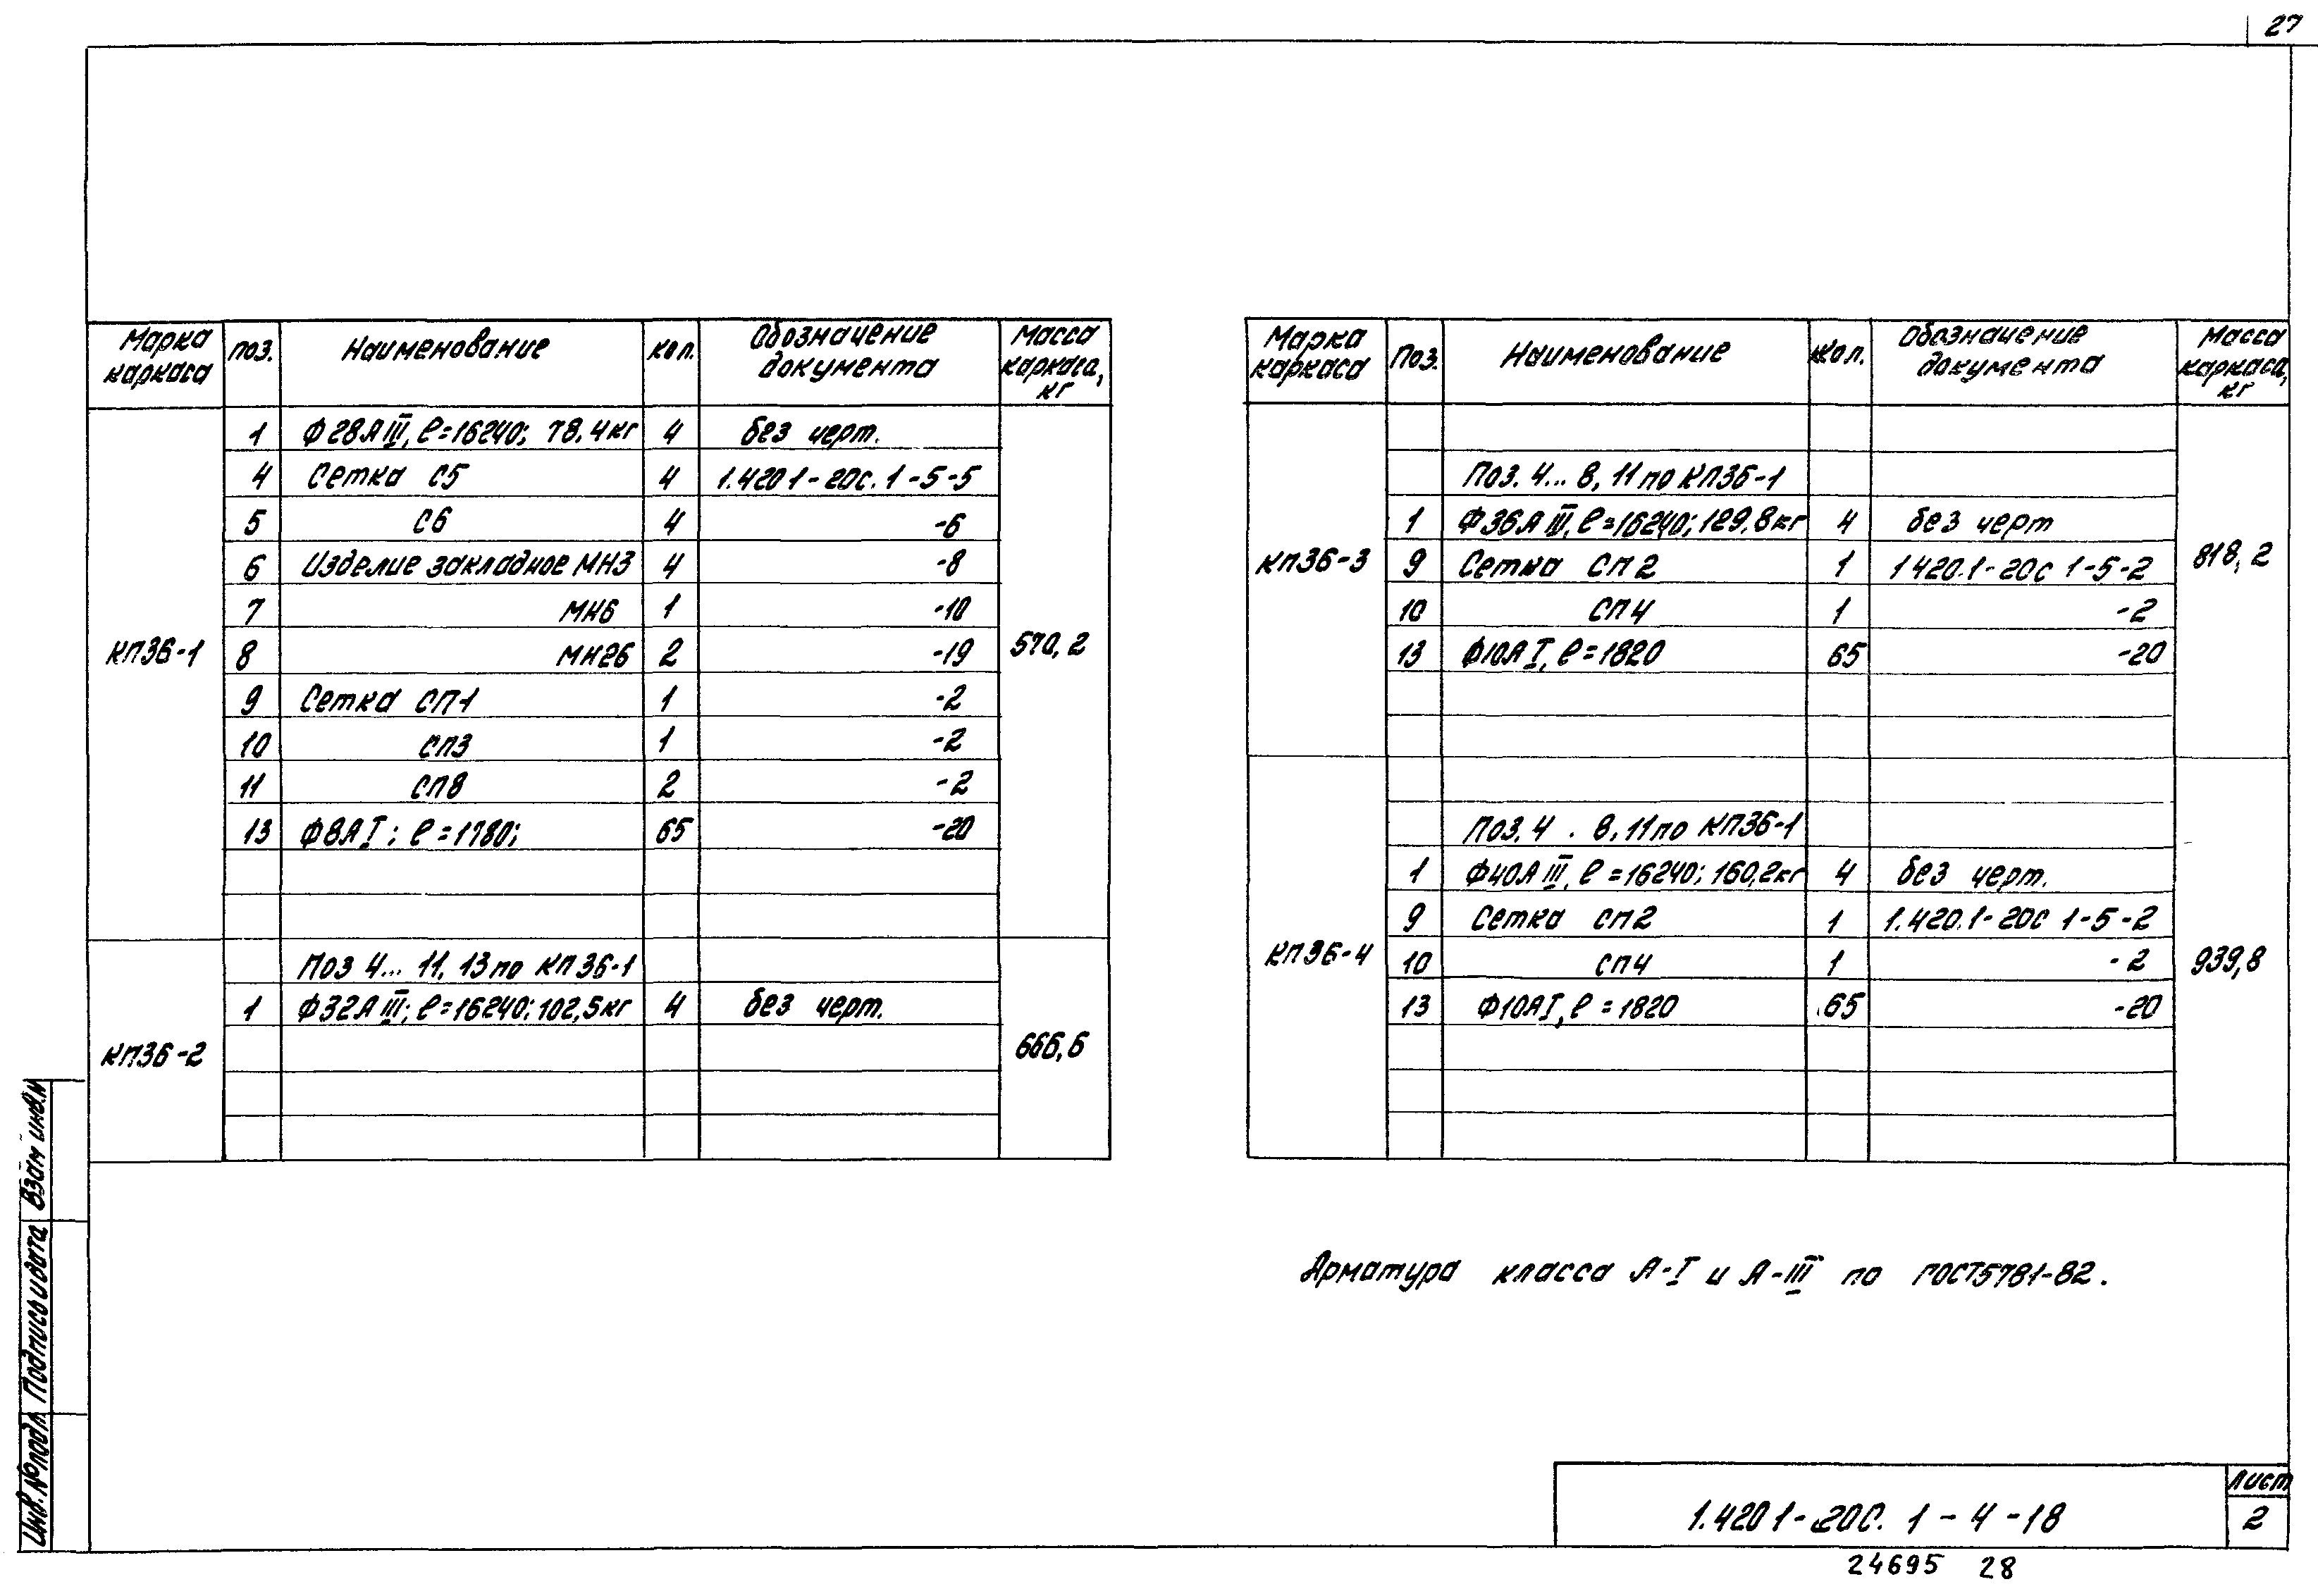 27
Марка каркаса Поз. Наименование Кол. Обозначение документа Масса каркаса, кг
КП36-1 570,2
1 Ф28АIII, ℓ=16240; 78,4кг 4 без черт.
4 Сетка С5 4 1.420 1-20с. 1-5-5
5 С6 4 -6
6 Изделие закладное МН3 4 -8
7 МН6 1 -10
8 МН26 2 -19
9 Сетка СП1 1 -2
10 СП3 1 -2
11 СП8 2 -2
13 Ф8АI; ℓ=1780; 65 -20
КП36-2 666,6
Поз 4... 11, 13 по КП36-1
1 Ф32АIII; ℓ=16240; 102,5кг 4 без черт.
Марка каркаса Поз. Наименование Кол. Обозначение документа Масса каркаса, кг
КП36-3 818,2
Поз. 4... 8, 11 по КП36-1
1 Ф36АIII, ℓ=16240; 129,8кг 4 без черт
9 Сетка СП2 1 1 420.1-20с 1-5-2
10 СП4 1 -2
13 Ф10АI, ℓ=1820 65 -20
КП36-4 939,8
Поз. 4 . 8, 11 по КП36-1
1 Ф40АIII, ℓ=16240; 160,2кг 4 без черт.
9 Сетка СП2 1 1.420.1-20с 1-5-2
10 СП4 1 -2
13 Ф10АI, ℓ=1820 65 -20
Арматура класса А-I и А-III по ГОСТ5781-82.
Инв. № подл Подпись и дата Взам инв. N
1.420 1-20с. 1-4-18
Лист
2
24695 28